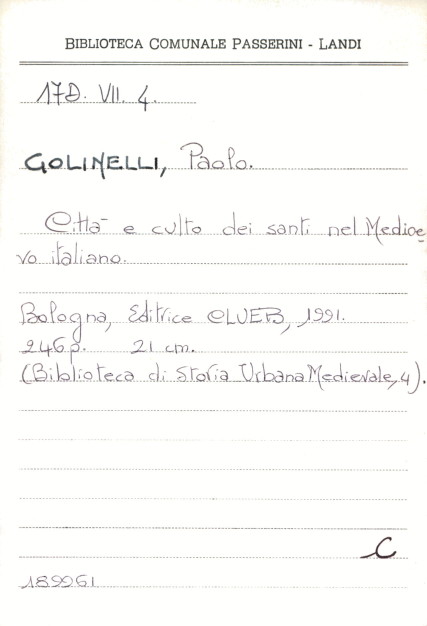 BIBLIOTECA COMUNALE PASSERINI - LANDI
17D. VII. 4.
GOLINELLI, Paolo.
Città e culto dei santi nel Medioe
vo italiano.
Bologna, Editrice CLUEB, 1991.
246 p. 21 cm.
(Biblioteca di Storia Urbana Medievale, 4).
C
189961